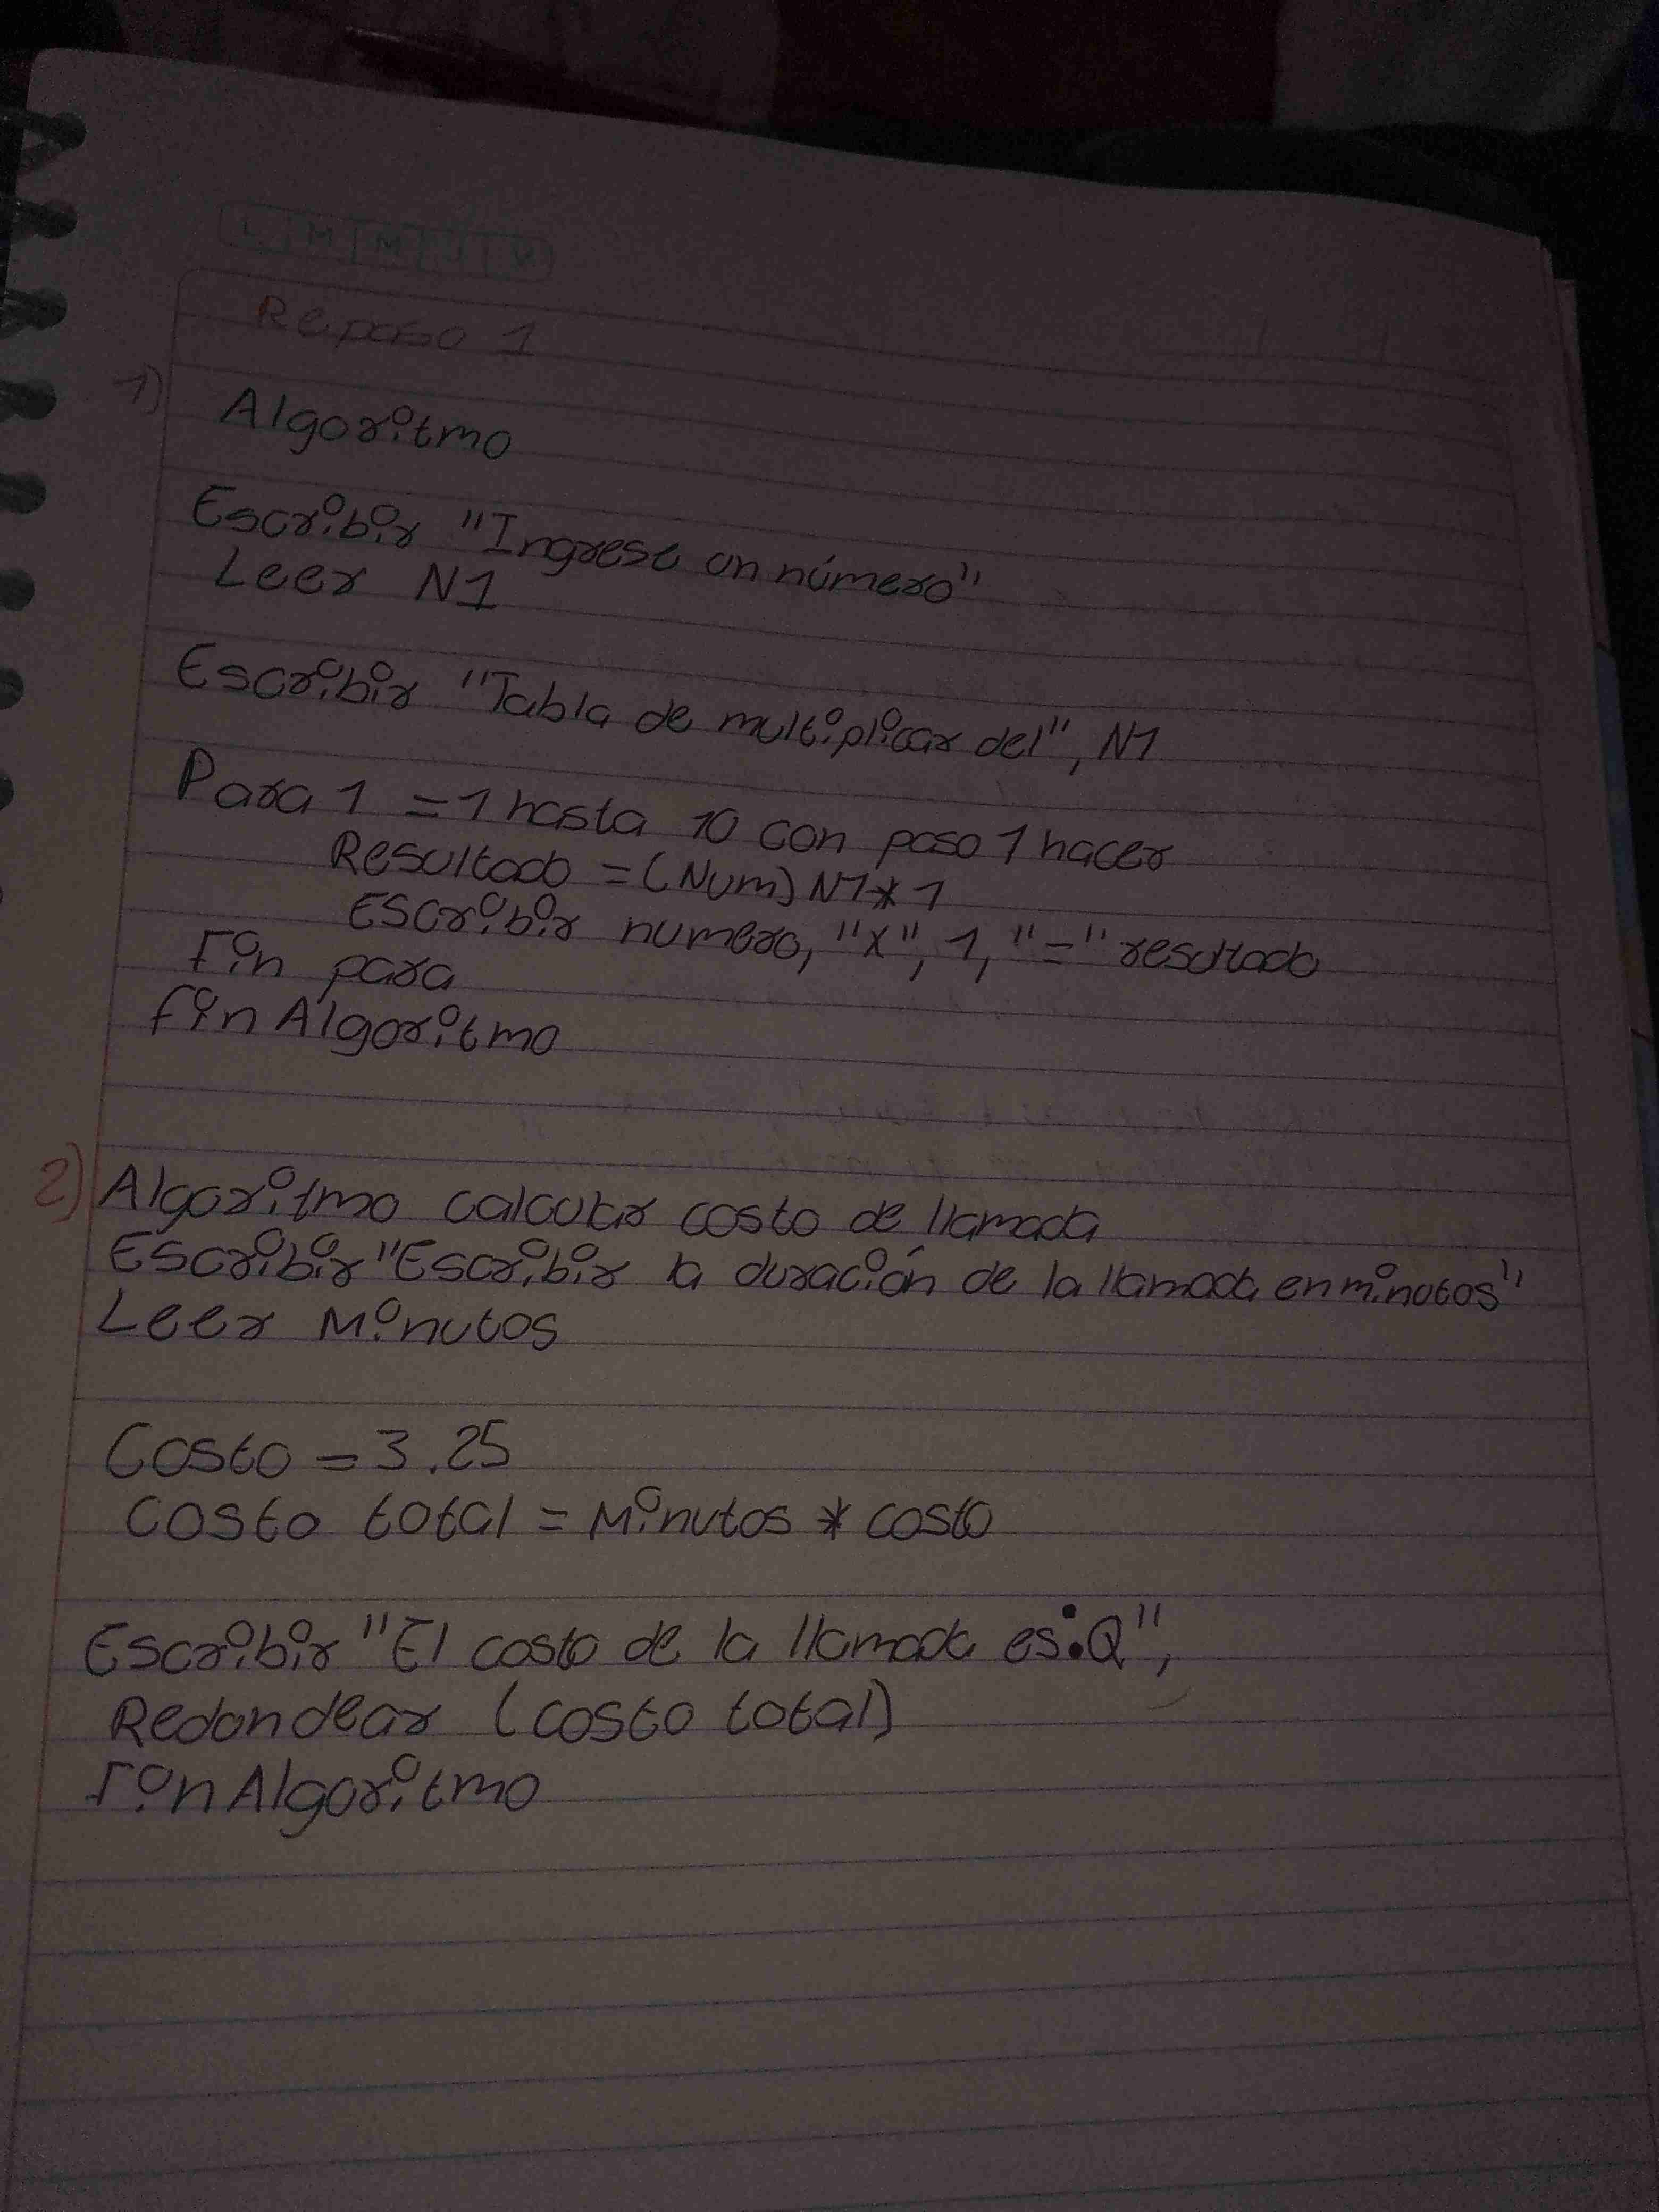 L M M J V
Repaso 1
1)
Algoritmo
Escribir "Ingrese un número"
Leer N1
Escribir "Tabla de multiplicar del", N1
Para 1 = 1 hasta 10 con paso 1 hacer
Resultado = (Num) N1 * 1
Escribir numero, "x", 1, "=" resultado
Fin para
fin Algoritmo
2) Algoritmo calcular costo de llamada
Escribir "Escribir la duración de la llamada en minutos"
Leer Minutos
Costo = 3.25
Costo total = Minutos * costo
Escribir "El costo de la llamada es: Q",
Redondear (costo total)
Fin Algoritmo